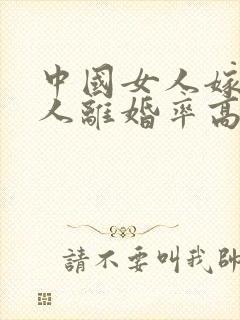 中國女人嫁
人離婚率高
請不要叫我帥